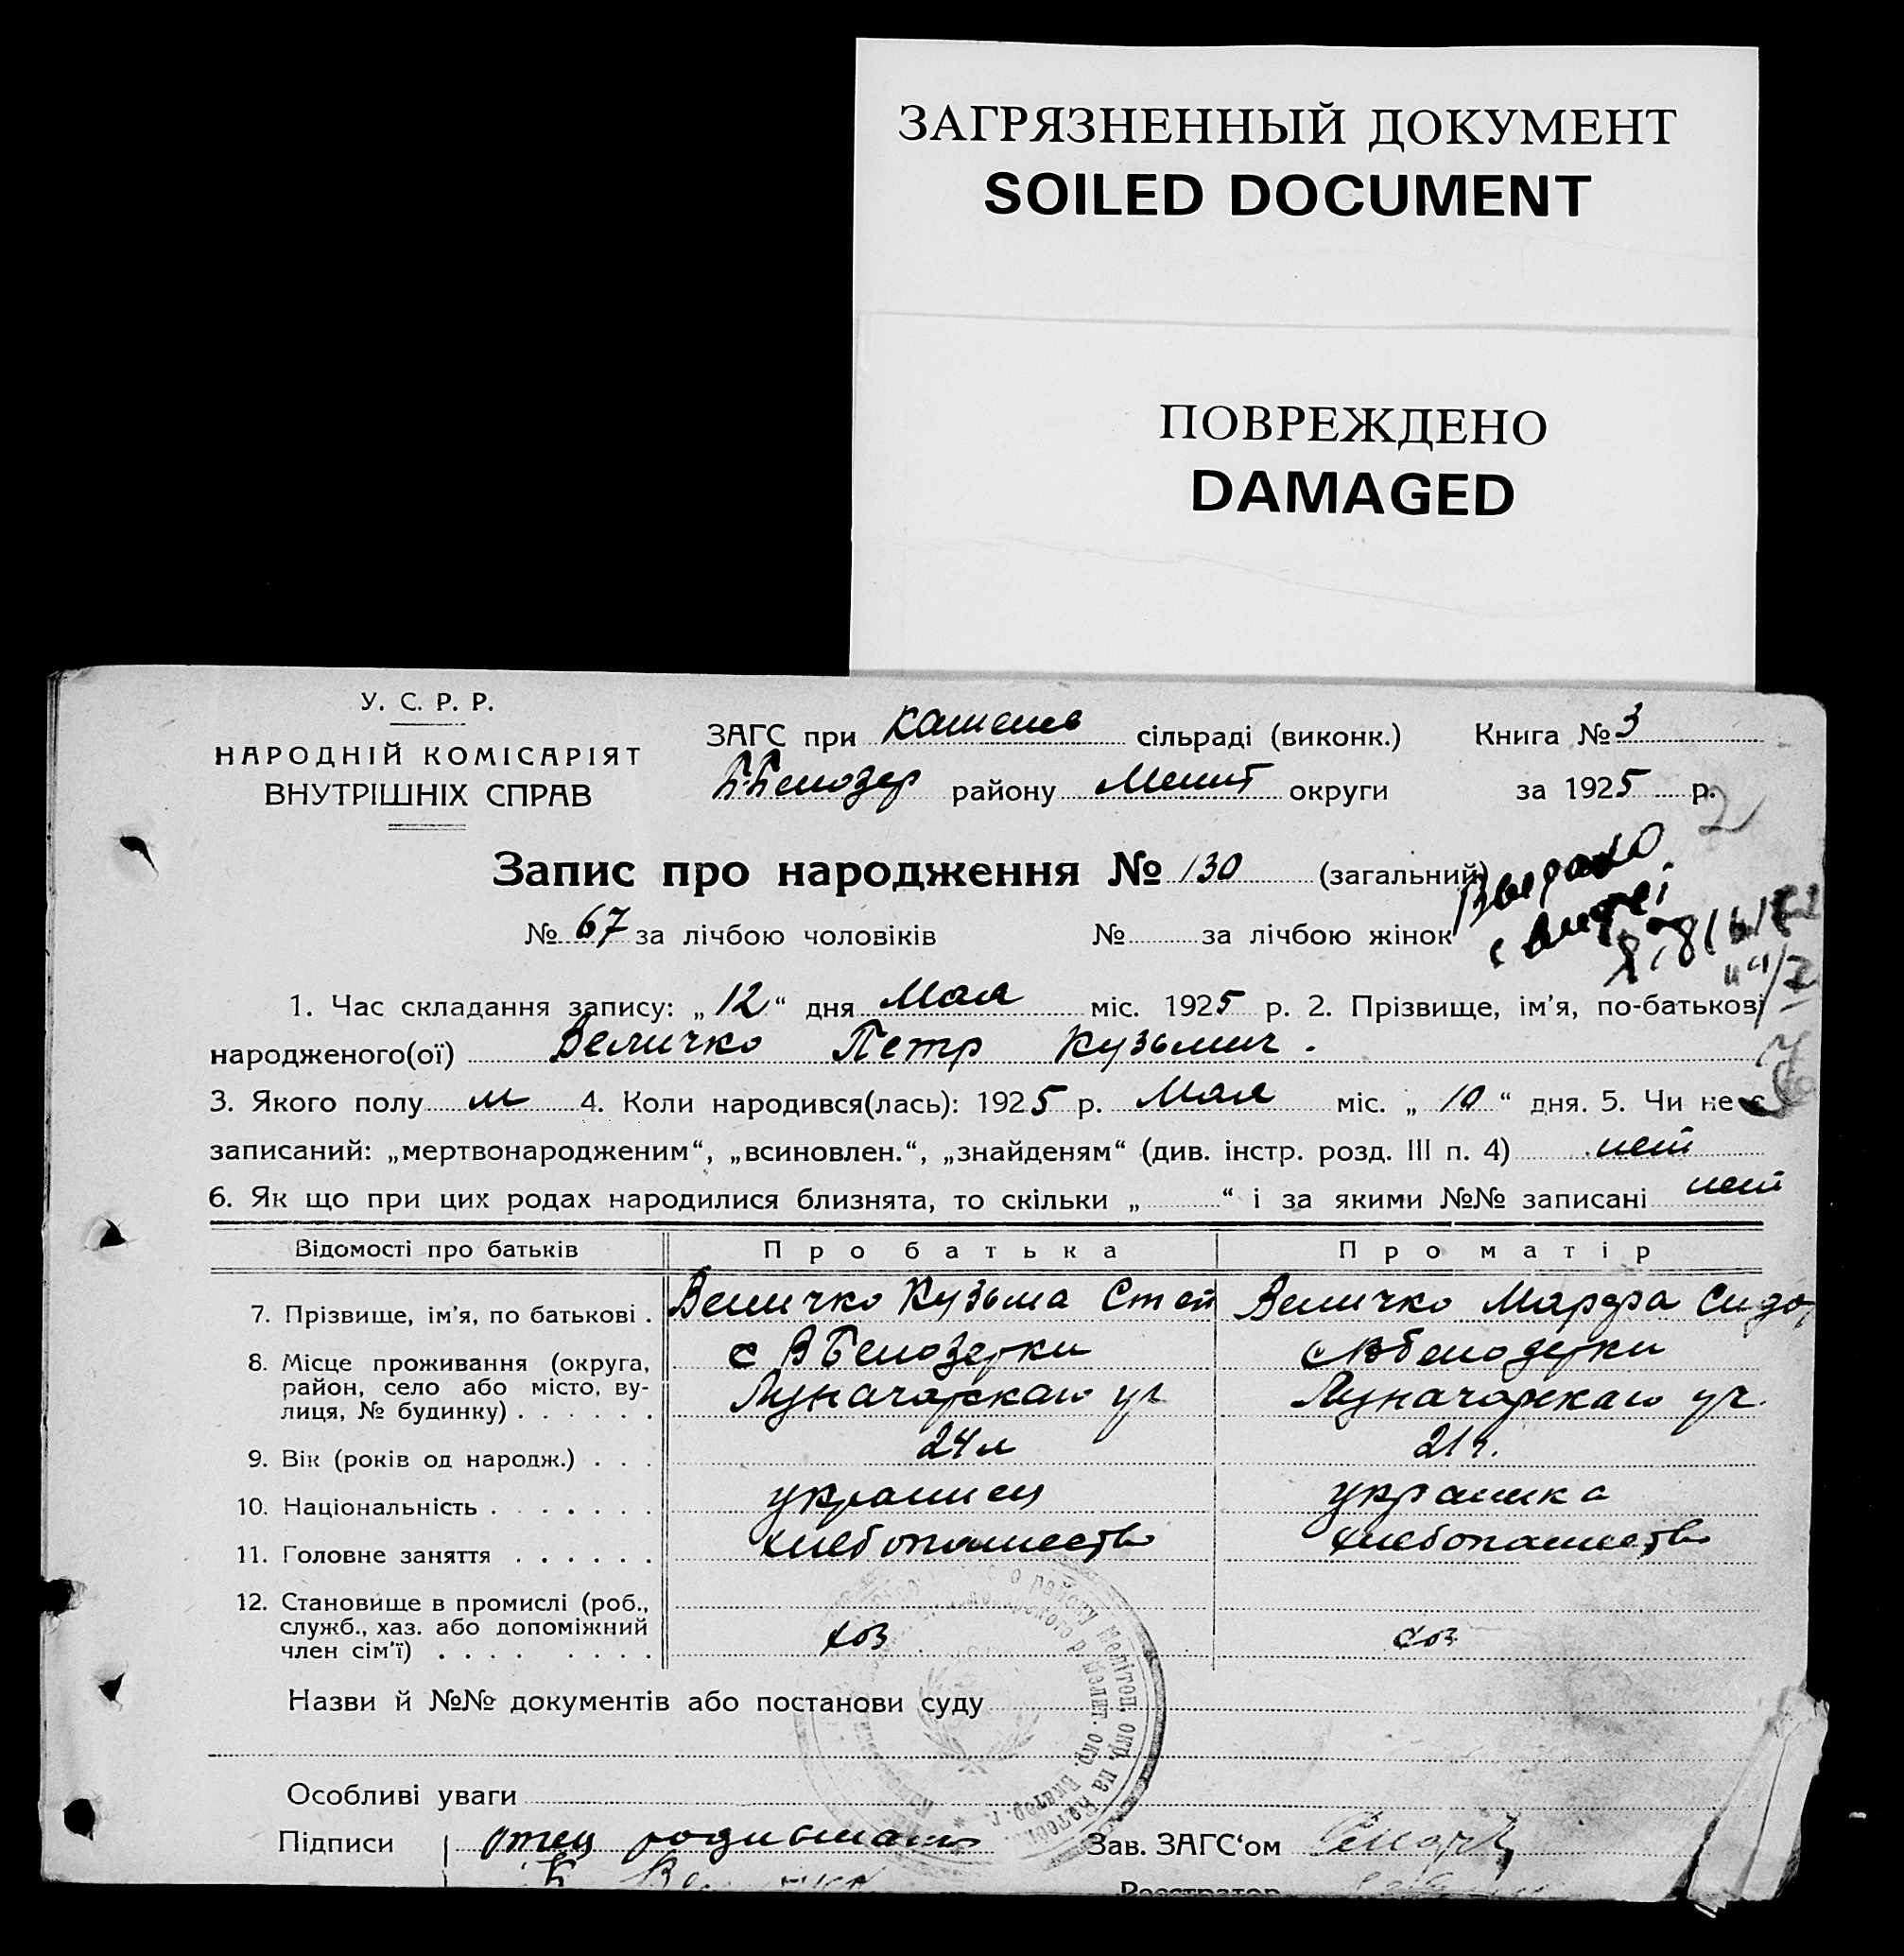 ЗАГРЯЗНЕННЫЙ ДОКУМЕНТ
SOILED DOCUMENT
ПОВРЕЖДЕНО
DAMAGED
У. С. Р. Р.
НАРОДНІЙ КОМІСАРІЯТ
ВНУТРІШНІХ СПРАВ
ЗАГС при сільраді (виконк.) Книга № 3
Б-Белозер району Мелит округи за 1925 р.
2
Запис про народження № 130 (загальний)
№ 67 за лічбою чоловіків № за лічбою жінок
1. Час складання запису: „ 12 “ дня Мая міс. 1925 р. 2. Прізвище, ім'я, по-батькові
народженого(ої) Величко Петр Кузьмич.
3. Якого полу м 4. Коли народився(лась): 1925 р. Мая міс. „ 10 “ дня. 5. Чи не є
записаний: „мертвонародженим“, „всиновлен.“, „знайденям“ (див. інстр. розд. III п. 4) нет
6. Як що при цих родах народилися близнята, то скільки „ “ і за якими №№ записані нет
Відомості про батьків Про батька Про матір
7. Прізвище, ім'я, по батькові . Величко Кузьма Степ Величко Марфа Сидо
8. Місце проживання (округа, с В Белозерки с В белозерки
район, село або місто, ву-
лиця, № будинку) . . . . . . Луначарскаго ул Луначарскаго ул.
9. Вік (років од народж.) . . . 24 л 21 г.
10. Національність . . . . . . . украинец украинка
11. Головне заняття . . . . . . хлебопашеств хлебопашеств
12. Становище в промислі (роб.,
служб., хаз. або допоміжний
член сім'ї) . . . . . . . . хоз хоз
Назви й №№ документів або постанови суду
Особливі уваги
Підписи отец Зав. ЗАГС‘ом
К
Реєстратор